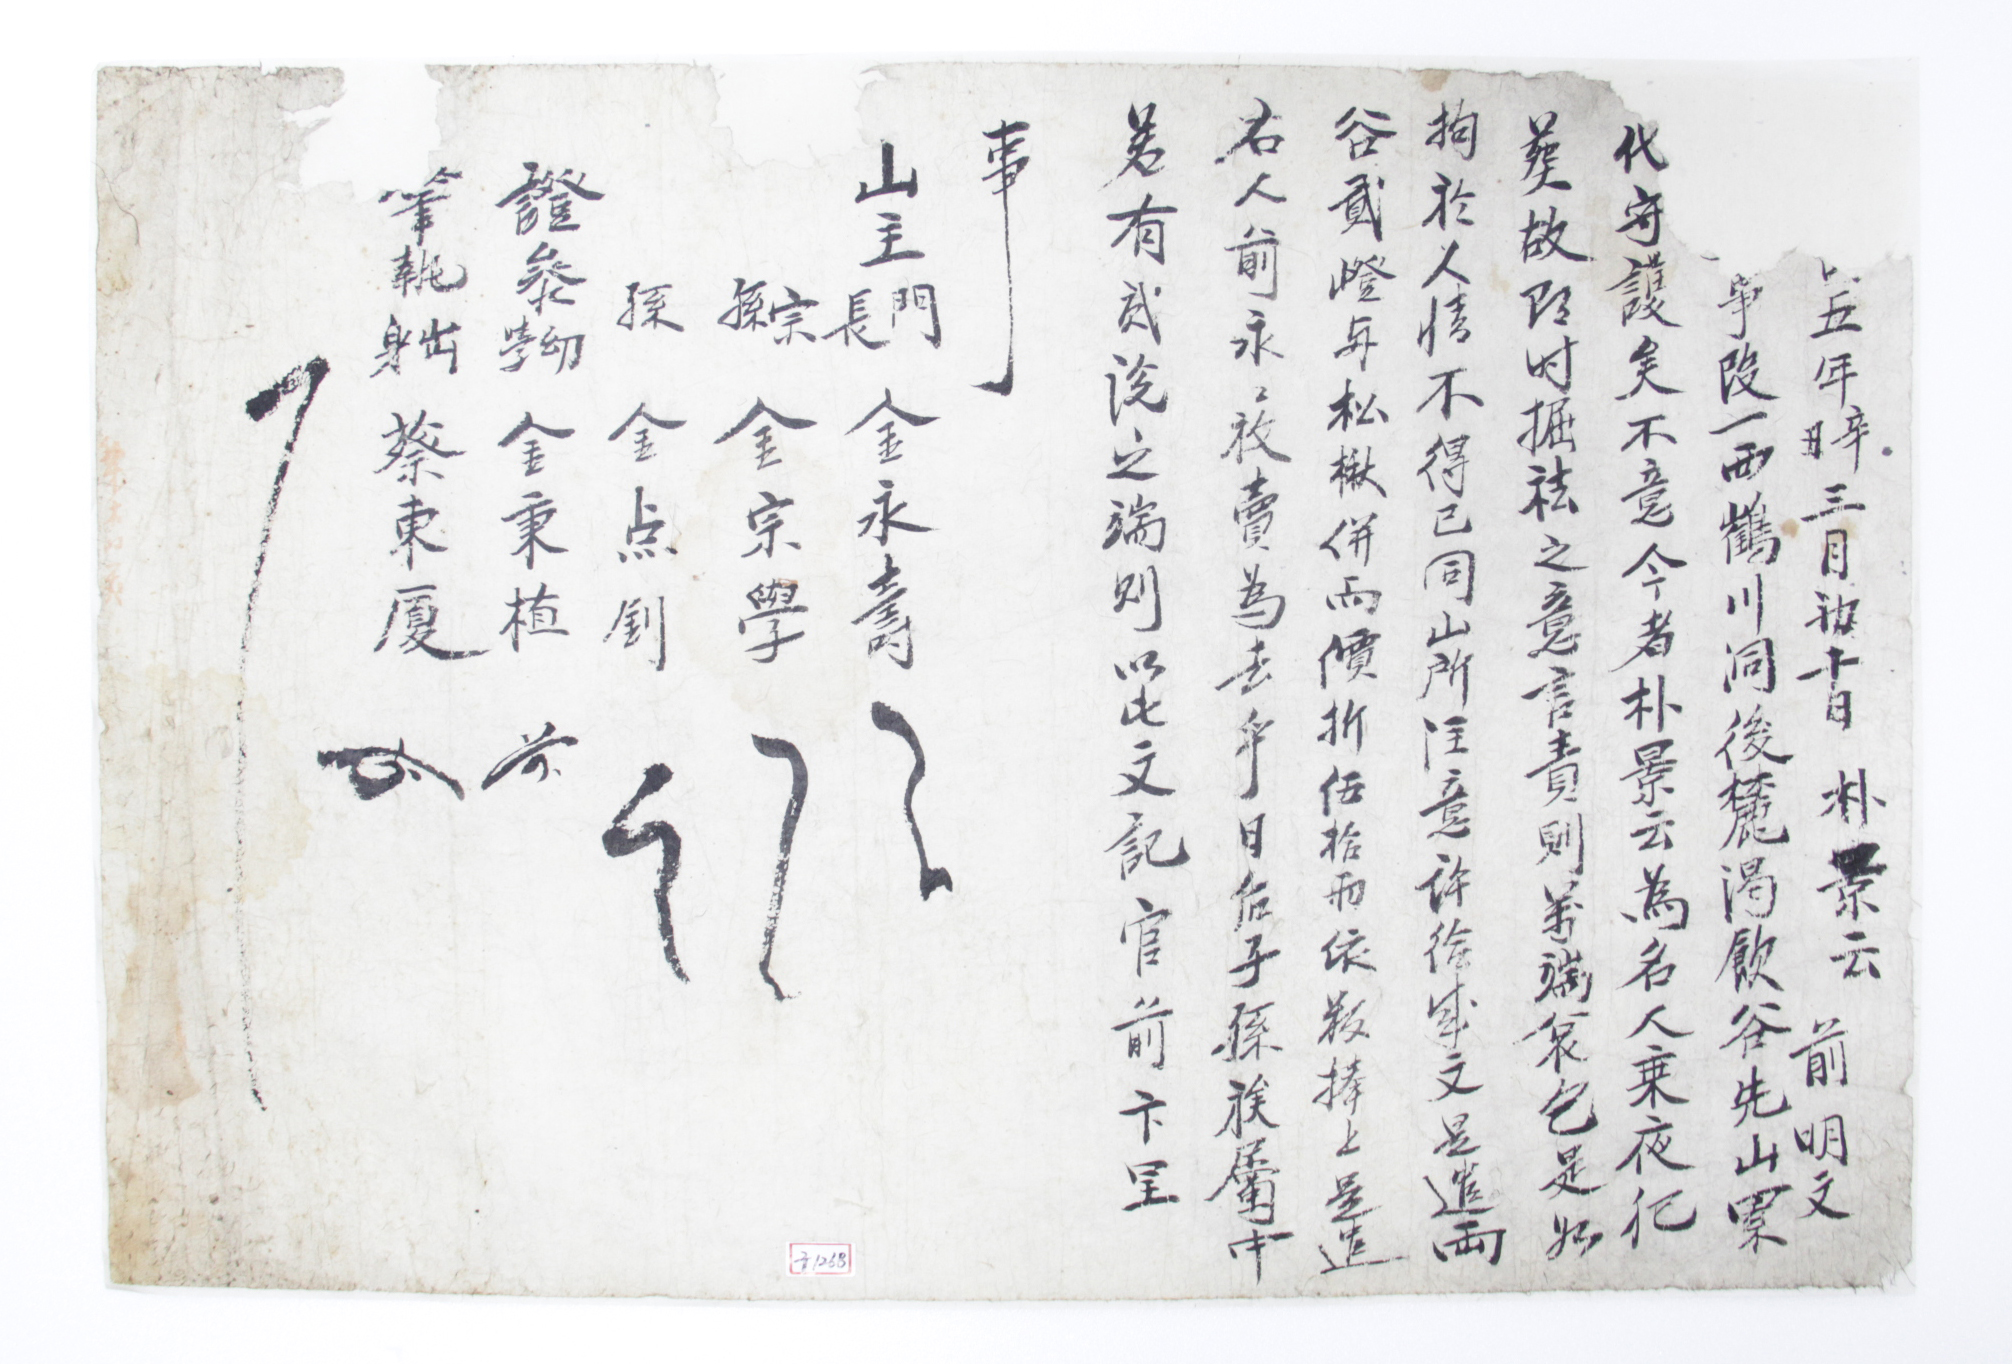 五年辛日三月初十日 朴景云 前明文
事段一西鶴川洞後麓渴飮谷先山累
代守護矣不意今者朴景云為名人乗夜犯
葬故即时掘祛之意言責則萬端哀乞是如
拘於人情不得已同山所注意許給成文是遣兩
谷貳嶝与松楸併而價折伍拾兩依數捧上是遣
右人前永永放賣為去乎日后子孫族屬中
若有貳說之端則以此文記官前卞呈
事
山主門長 金永壽
宗孫 金宗學
孫 金点釗
證參幼學 金秉植
筆執出身 蔡東厦